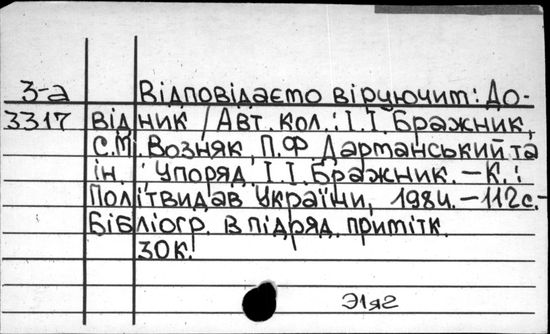 З-а Відповідаємо віруючим: До-
3317 відник / Авт. кол.: І.І. Бражник,
С.М. Возняк, П.Ф. Дарманський та
ін. Упоряд. І.І. Бражник. – К.:
Політвидав України, 1984. – 112 с. –
Бібліогр. в підряд. примітк.
30к.
Э1я2